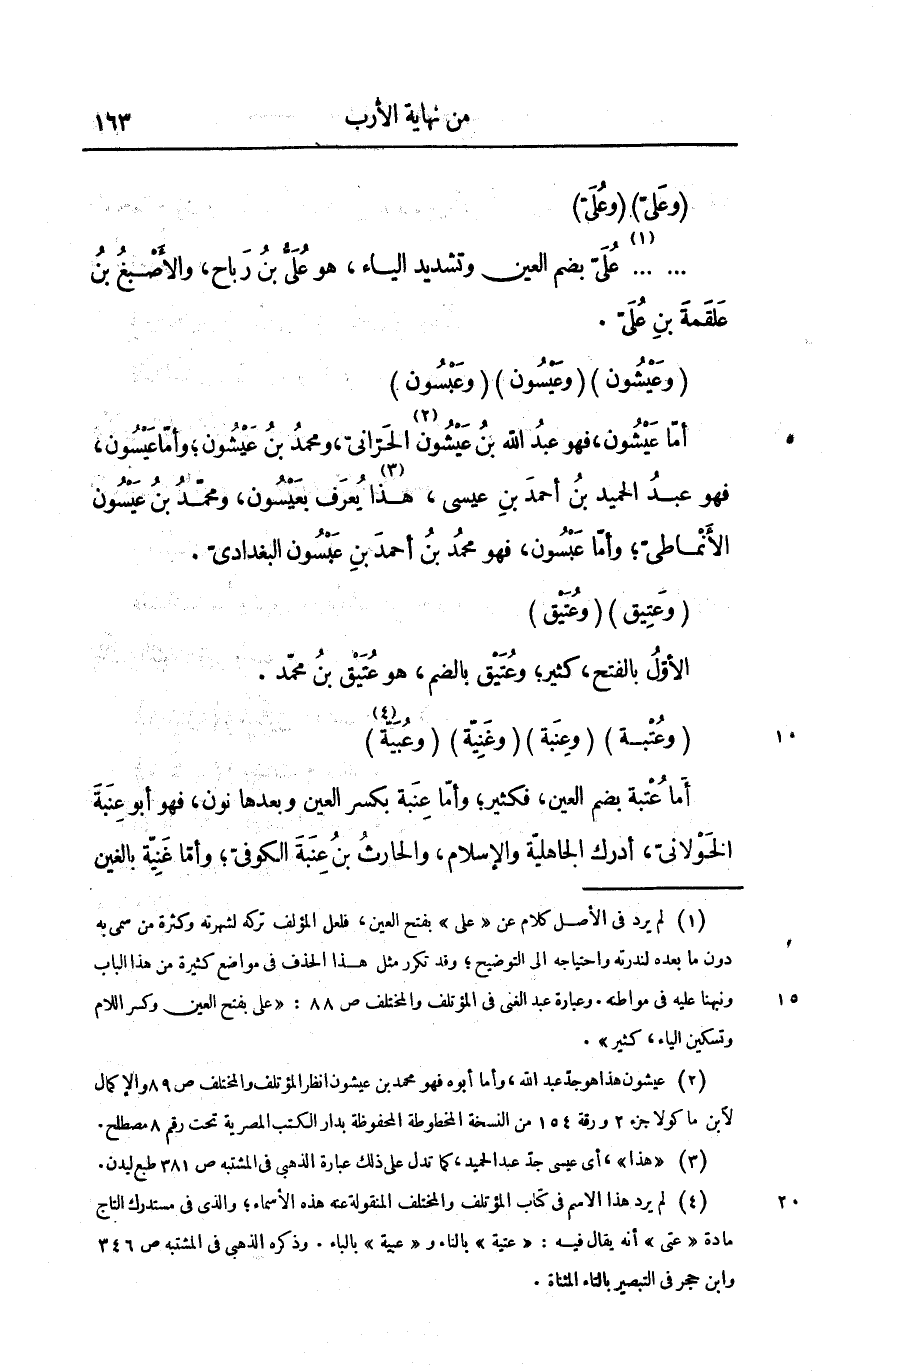 من نهاية الأرب ١٦٣
(وعَلِىّ) (وعُلَىّ)
... ... (١) عُلَىّ بضم العين وتشديد الياء، هو عُلَىُّ بنُ رَباح، والأَصْبغُ بنُ
عَلقَمةَ بنِ عُلَىّ .
(وعَيْشُون) (وعَيْسُون) (وعَبْسُون)
٥ أمّا عَيْشُون، فهو عبدُ الله بنُ عَيْشُون (٢) الحَرّانىّ، ومحمدُ بنُ عَيْشُون؛ وأمّا عَيْسُون،
فهو عبدُ الحميد بنُ أحمدَ بنِ عيسى، هذا (٣) يُعرَف بعَيْسُون، ومحمّدُ بنُ عَيْسُون
الأَنْماطىّ؛ وأمّا عَبْسُون، فهو محمدُ بنُ أحمدَ بنِ عَبْسُون البغدادىّ .
(وعَتِيق) (وعُتَيْق)
الأوّلُ بالفتح، كثير؛ وعُتَيْق بالضم، هو عُتَيْق بنُ محمّد .
١٠ (وعُتْبة) (وعِنَبة) (وغَنِيّة) (وعُبَيّة) (٤)
أما عُتْبة بضم العين، فكثير؛ وأمّا عِنَبة بكسر العين وبعدها نون، فهو أبو عِنَبَةَ
الخَوْلانىّ، أدرك الجاهليّة والإسلام، والحارثُ بنُ عِنَبَةَ الكوفىّ؛ وأمّا غَنِيّة بالغين
(١) لم يرد فى الأصل كلام عن «على» بفتح العين، فلعل المؤلف تركه لشهرته وكثرة من سمى به
دون ما بعده لندرته واحتياجه الى التوضيح؛ وقد تكرر مثل هذا الحذف فى مواضع كثيرة من هذا الباب
١٥ ونبهنا عليه فى مواطنه . وعبارة عبد الغنى فى المؤتلف والمختلف ص ٨٨ : «على بفتح العين وكسر اللام
وتسكين الياء، كثير» .
(٢) عيشون هذا هو جدّ عبد الله، وأما أبوه فهو محمد بن عيشون انظر المؤتلف والمختلف ص ٨٩ والإكمال
لابن ماكولا جزء ٢ ورقة ١٥٤ من النسخة المخطوطة المحفوظة بدار الكتب المصرية تحت رقم ٨ مصطلح .
(٣) «هذا»، أى عيسى جدّ عبد الحميد، كما تدل على ذلك عبارة الذهبى فى المشتبه ص ٣٨١ طبع ليدن .
٢٠ (٤) لم يرد هذا الاسم فى كتاب المؤتلف والمختلف المنقولة عنه هذه الأسماء؛ والذى فى مستدرك التاج
مادة «عتى» أنه يقال فيه : «عتية» بالتاء و «عبية» بالباء . وذكره الذهبى فى المشتبه ص ٣٤٦
وابن حجر فى التبصير بالتاء المثناة .